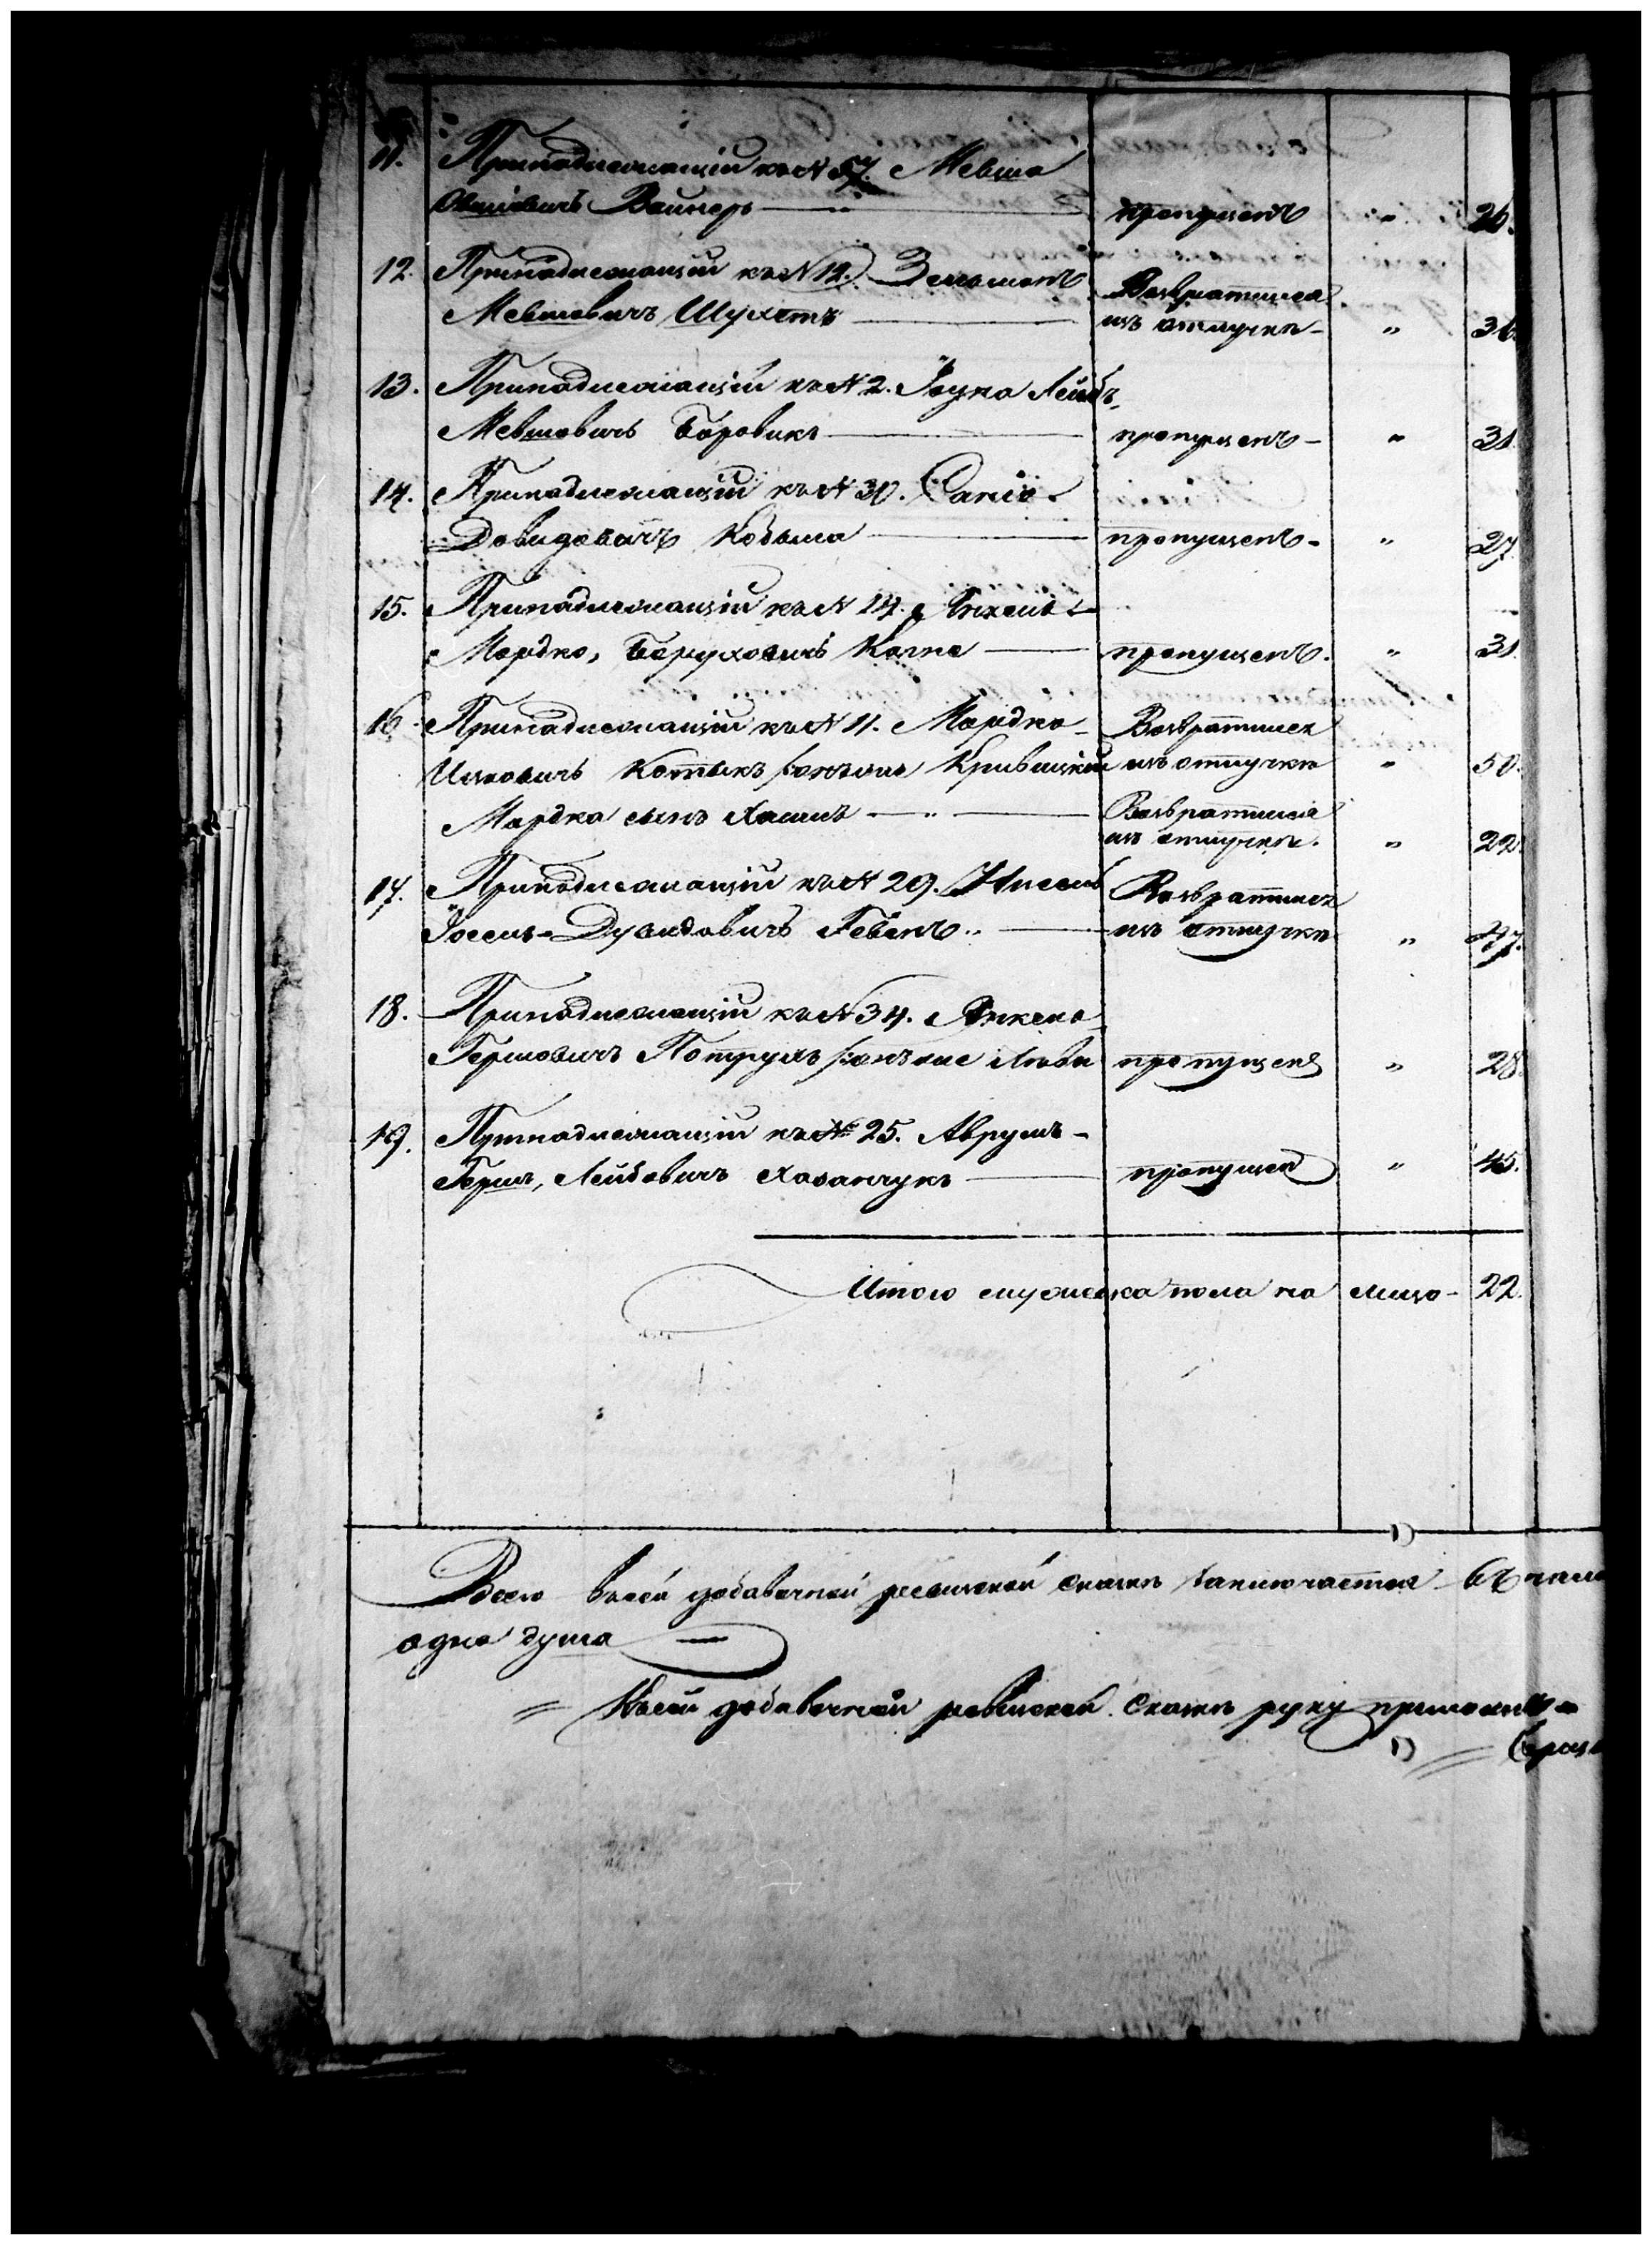 11. Принадлежащій къ N 57. Мевша
Вайнеръ — пропущенъ „ 26.
12. Принадлежащій къ N 12. Зельманъ
Мевшовичъ Шухетъ — Возвратился
изъ отлучки — „ 36.
13. Принадлежащій къ N 2. Іоуна Лейбъ,
Мевшовичъ Боровикъ — пропущенъ — „ 31.
14. Принадлежащій къ N 30.
Довидовичъ Кобыла — пропущенъ — „ 27.
15. Принадлежащій къ N 14. Янкель
Мордко, Боруховичъ — пропущенъ. „ 31.
16. Принадлежащій къ N 11. Мордко Возвратился
Ицковичъ Котыкъ онъ же Кривицкій изъ отлучки „ 50.
Мордка сынъ Хаимъ — „ — Возвратился
изъ отлучки. „ 22.
17. Принадлежащій къ N 29. Нисель Возвратился
Іосель-Дувидовичъ — изъ отлучки „ 47.
18. Принадлежащій къ N 34. Янкель
Гершовичъ онъ же пропущенъ „ 28.
19. Принадлежащій къ № 25. Аврумъ-
Гершъ, Лейбовичъ Хазанчукъ — пропущенъ „ 45.
Итого мужеска пола на лицо — 22.
Всего въ сей добавочной ревизской сказкѣ заключается
одна душа —
Къ сей добавочной ревизской сказкѣ руку приложилъ